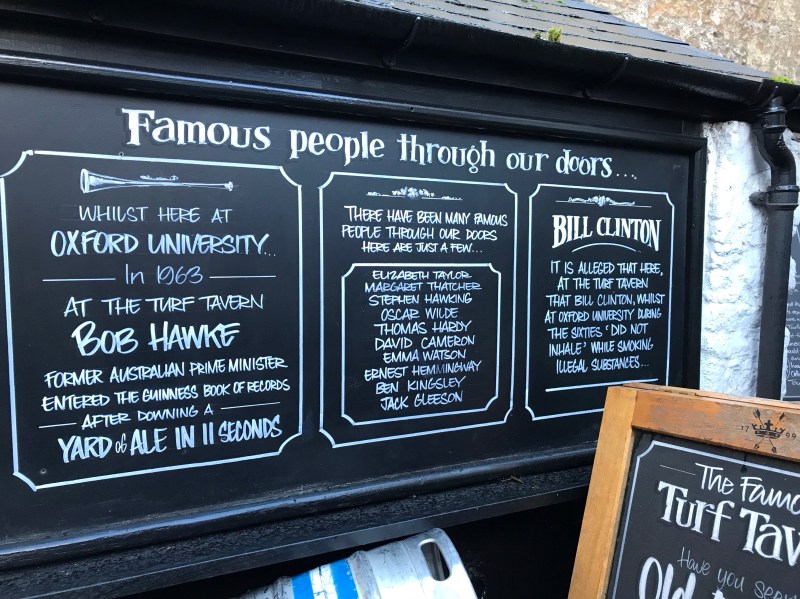 Famous people through our doors...
WHILST HERE AT
OXFORD UNIVERSITY...
In 1963
AT THE TURF TAVERN
BOB HAWKE
FORMER AUSTRALIAN PRIME MINISTER
ENTERED THE GUINNESS BOOK OF RECORDS
AFTER DOWNING A
YARD of ALE IN 11 SECONDS
THERE HAVE BEEN MANY FAMOUS
PEOPLE THROUGH OUR DOORS
HERE ARE JUST A FEW...
ELIZABETH TAYLOR
MARGARET THATCHER
STEPHEN HAWKING
OSCAR WILDE
THOMAS HARDY
DAVID CAMERON
EMMA WATSON
ERNEST HEMMINGWAY
BEN KINGSLEY
JACK GLEESON
BILL CLINTON
IT IS ALLEGED THAT HERE,
AT THE TURF TAVERN
THAT BILL CLINTON, WHILST
AT OXFORD UNIVERSITY DURING
THE SIXTIES 'DID NOT
INHALE' WHILE SMOKING
ILLEGAL SUBSTANCES...
17 99
The Famo
Turf Tav
Have you seen